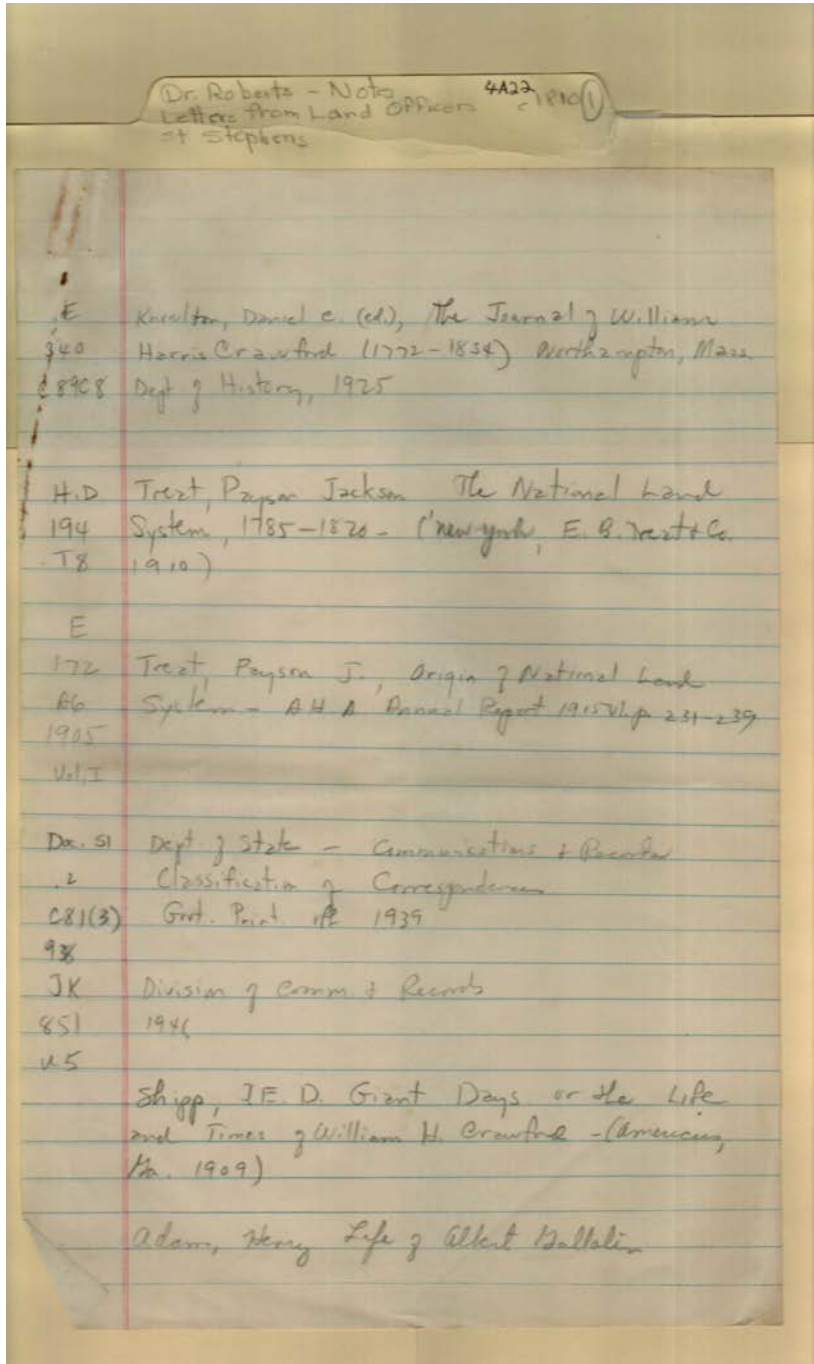 Dr. Roberts - Notes 4A22 c1810 (1)
Letters from Land Officers
St Stephens
E Knowlton, Daniel C. (ed.), The Journal of William
340 Harris Crawford (1772-1834) Northampton, Mass
C89C8 Dept of History, 1925
H.D Treat, Payson Jackson The National Land
194 System, 1785-1820- (new york, E. B. Treat & Co.
.T8 1910)
E
172 Treat, Payson J., Origin of National Land
A6 System - AHA Annual Report 1905 p. 231-239
1905
Vol, I
Doc. S1 Dept. of State - Communications & Records
.2 Classification of Correspondence
C81(3) Gort. Print off 1939
938
JK Division of Comm. & Records
851
U5
Shipp, J.E.D. Giant Days or the Life
and Times of William H. Crawford - (Americus,
Ga. 1909)
Adams, Henry Life of Albert Gallatin